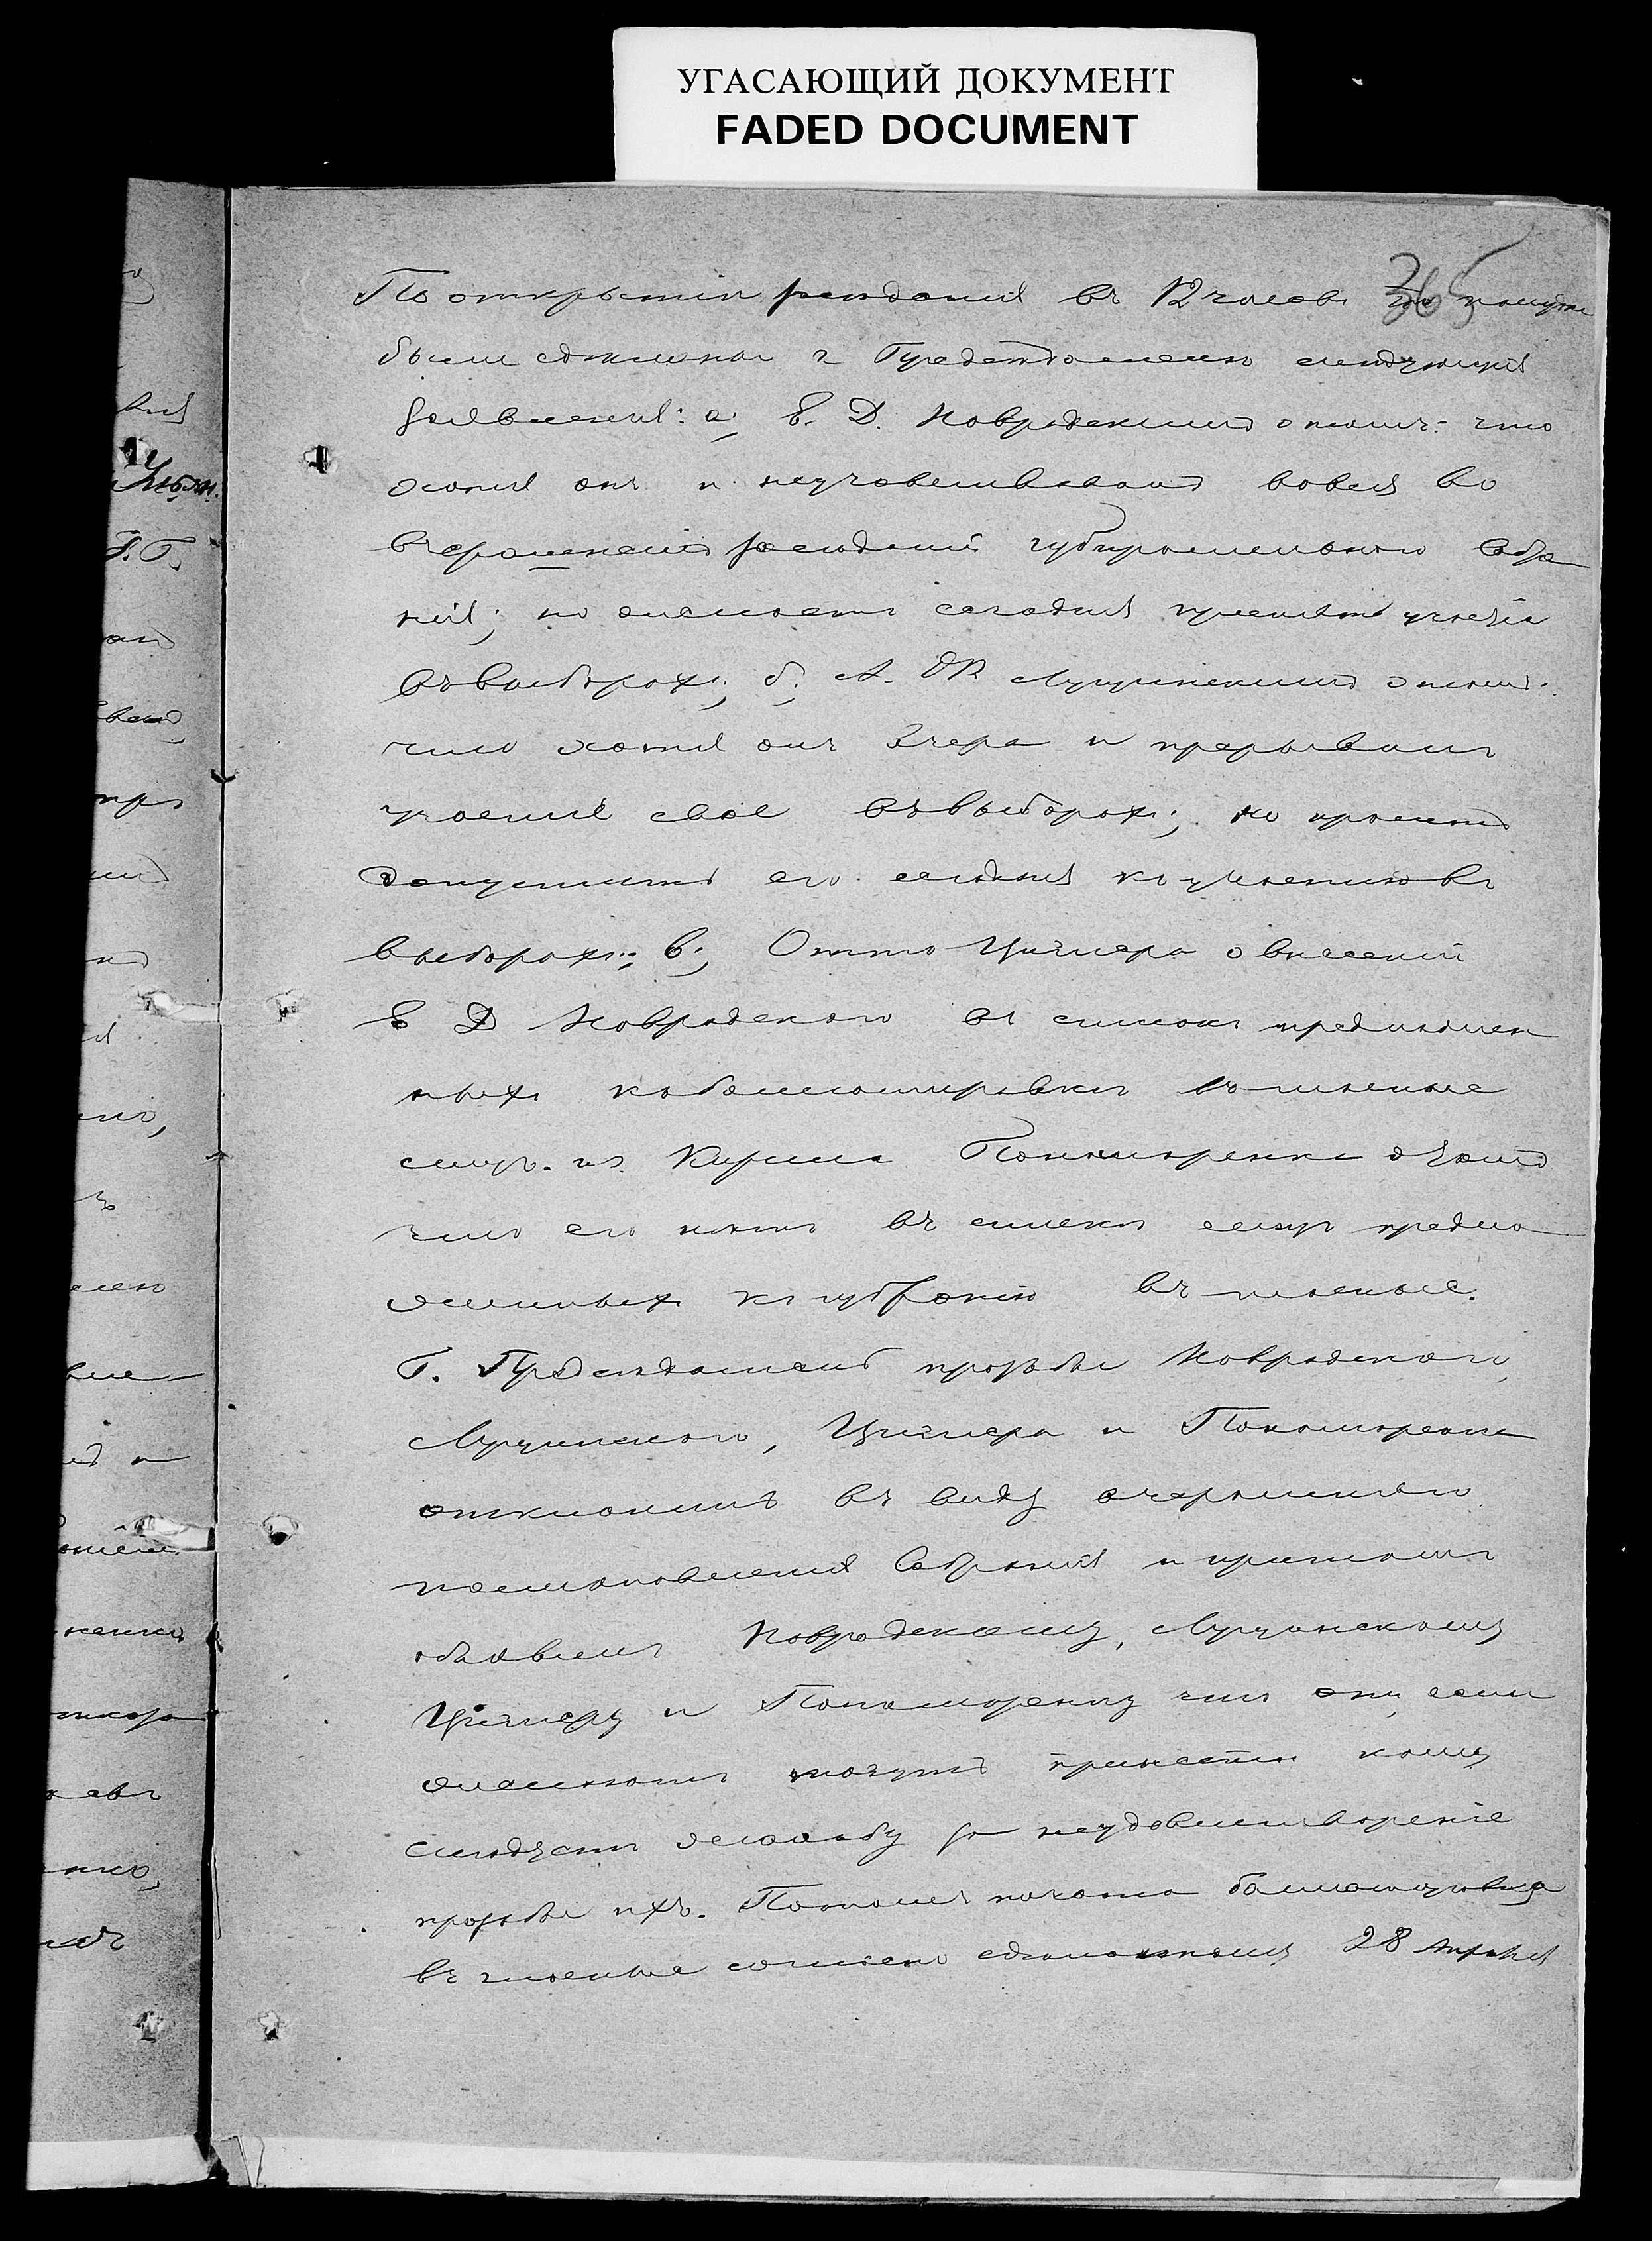 УГАСАЮЩИЙ ДОКУМЕНТ
FADED DOCUMENT
365
По открытіи засѣданія въ 12 часовъ по полудни
были сдѣланы г Предсѣдателю слѣдующія
заявленія: а, Е. Д. Навродскимъ о томъ: что
хотя онъ и неучаствовалъ вовся во
вчерашнемъ засѣданіи избирательнаго Собра
нія; но желаетъ сегодня принять участіе
въ выборахъ; б, А. Лучинскимъ о томъ
что хотя онъ вчера и прервалъ
участіе свое въ выборахъ; но проситъ
допустить его сегодня къ участію въ
выборахъ; в, Отто Цигнера о внесеніи
Е Д Навродскаго въ списокъ предложен
ныхъ къ баллотировкѣ въ гласные
Кирила Пономаренка
что его нѣтъ въ спискѣ предло
женныхъ къ избранію въ гласные.
Г. Предсѣдатель прозьбы Навродскаго,
Лучинскаго, Цигнера и Пономаренка
отклонилъ въ виду вчерашняго
постановленія Собранія и притомъ
объявилъ Навродскому, Лучинскому
Цигнеру и Пономаренку что они, если
желаютъ могутъ принести кому
слѣдуетъ жалобу за неудовлетвореніе
прозьбы ихъ. Потомъ начата баллотировка
въ гласные согласно сдѣланному 28 Апрѣля